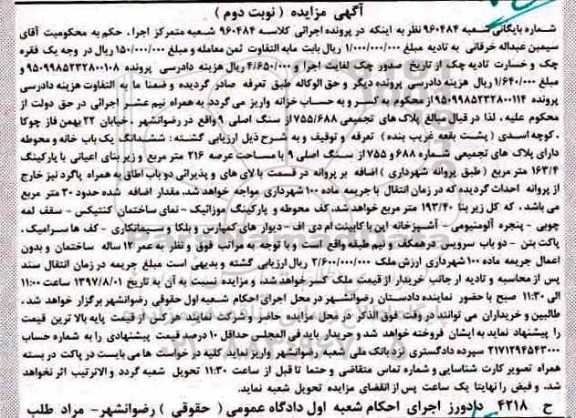 آگهی مزایده ( نوبت دوم )
شماره بایگانی شعبه ۹۶۰۴۸۴ نظر به اینکه در پرونده اجرائی کلاسه ۹۶۰۴۸۴ شعبه متمرکز اجرا . حکم به محکومیت آقای
سیمین عبداله خرقانی به تادیه مبلغ ۱/۰۰۰/۰۰۰/۰۰۰ ریال بابت مابه التفاوت ثمن معامله و مبلغ ۱۵۰/۰۰۰/۰۰۰ ریال در وجه یک فقره
چک و خسارت تادیه چک از تاریخ صدور چک لغایت اجرا و ۴/۶۵۰/۰۰۰ ریال هزینه دادرسی پرونده ۹۵۰۹۹۸۵۲۳۲۸۰۰۱۰۸ و
مبلغ ۱/۶۴۰/۰۰۰ ریال هزینه دادرسی پرونده دیگر و حق الوکاله طبق تعرفه صادر گردیده و ضمنا ما به التفاوت هزینه دادرسی
پرونده ۹۵۰۹۹۸۵۲۳۲۸۰۰۱۱۴ از محکوم به کسر و به حساب خزانه واریز می گردد به همراه نیم عشر اجرائی در حق دولت از
محکوم علیه . لذا در قبال مبالغ پلاک های تجمیعی ۷۵۵/۶۸۸ از سنگ اصلی ۹ واقع در رضوانشهر . خیابان ۲۲ بهمن فاز چوکا
. کوچه اسدی ( پشت بقعه غریب بنده ) تعرفه و توقیف و به شرح ذیل ارزیابی گشته : ششدانگ یک باب خانه و محوطه
دارای پلاک های تجمیعی شماره ۶۸۸ و ۷۵۵ از سنگ اصلی ۹ با مساحت عرصه ۲۱۶ متر مربع و زیربنای اعیانی با پارکینگ
۱۶۳/۴ متر مربع ( طبق پروانه شهرداری ) اضافه بر پروانه در قسمت با لای های و پذیرائی دو باب اطاق به همراه پاگرد نیز خارج
از پروانه احداث گردیده که در زمان انتقال با جریمه ماده ۱۰۰ شهرداری مواجه خواهد شد. مقدار اضافه شده حدود ۳۰ متر مربع
می باشد . که کل زیر بنا ۱۹۳/۴۰ متر مربع خواهد شد. کف محوطه و پارکینگ موزائیک - نمای ساختمان کنتیکس - سقف لمه
چوبی - پنجره آلومنیومی - آشپزخانه اپن با کابینت ام دی اف - دیوار های کمپارس و بلکا و سیمانکاری - کف ها سرامیک .
پاکت بتن - دو باب سرویس در همکف و نیم طبقه واقع است و با توجه به مراتب فوق و نظر به عمر ۱۲ ساله ساختمان و بدون
اعمال جریمه ماده ۱۰۰ شهرداری ارزش ملک ۳/۶۰۰/۰۰۰/۰۰۰ ریال ارزیابی گشته و بدیهی است مبلغ جریمه در زمان انتقال سند
پس از محاسبه و تادیه از جانب خریدار از قیمت ملک کسر خواهد شد، و مزایده نسبت به آن به تاریخ ۱۳۹۷/۸/۰۱ ساعت ۱۱:۰۰
الی ۱۱:۳۰ صبح با حضور نماینده دادستان رضوانشهر در محل اجرای احکام شعبه اول حقوقی رضوانشهر برگزار خواهد شد .
طالبین و خریداران می توانند در وقت فوق الذکر در محل مزایده حاضر و شرکت نمایند هر کس از قیمت پایه بالا ترین قیمت
را پیشنهاد نماید به ایشان فروخته خواهد شد و خریدار باید فی المجلس حداقل ۱۰ درصد قیمت پیشنهادی را به شماره حساب
۲۱۷۱۲۹۴۵۴۳۰۰۰ سپرده دادگستری نزد بانک ملی شعبه رضوانشهر واریز نماید. کلیه در خواست ها می بایست در پاکت در بسته
همراه تصویر کارت شناسایی و شماره تماس متقاضی و حتما تا قبل از ساعت ۱۱:۳۰ تحویل شعبه گردد و الا ترتیب اثر نخواهد
شد، و فیش را نهایتا یک ساعت پس از انقضای مزایده تحویل شعبه نماید.
ح ۴۲۱۸ دادورز اجرای احکام شعبه اول دادگاه عمومی ( حقوقی ) رضوانشهر - مراد طلب